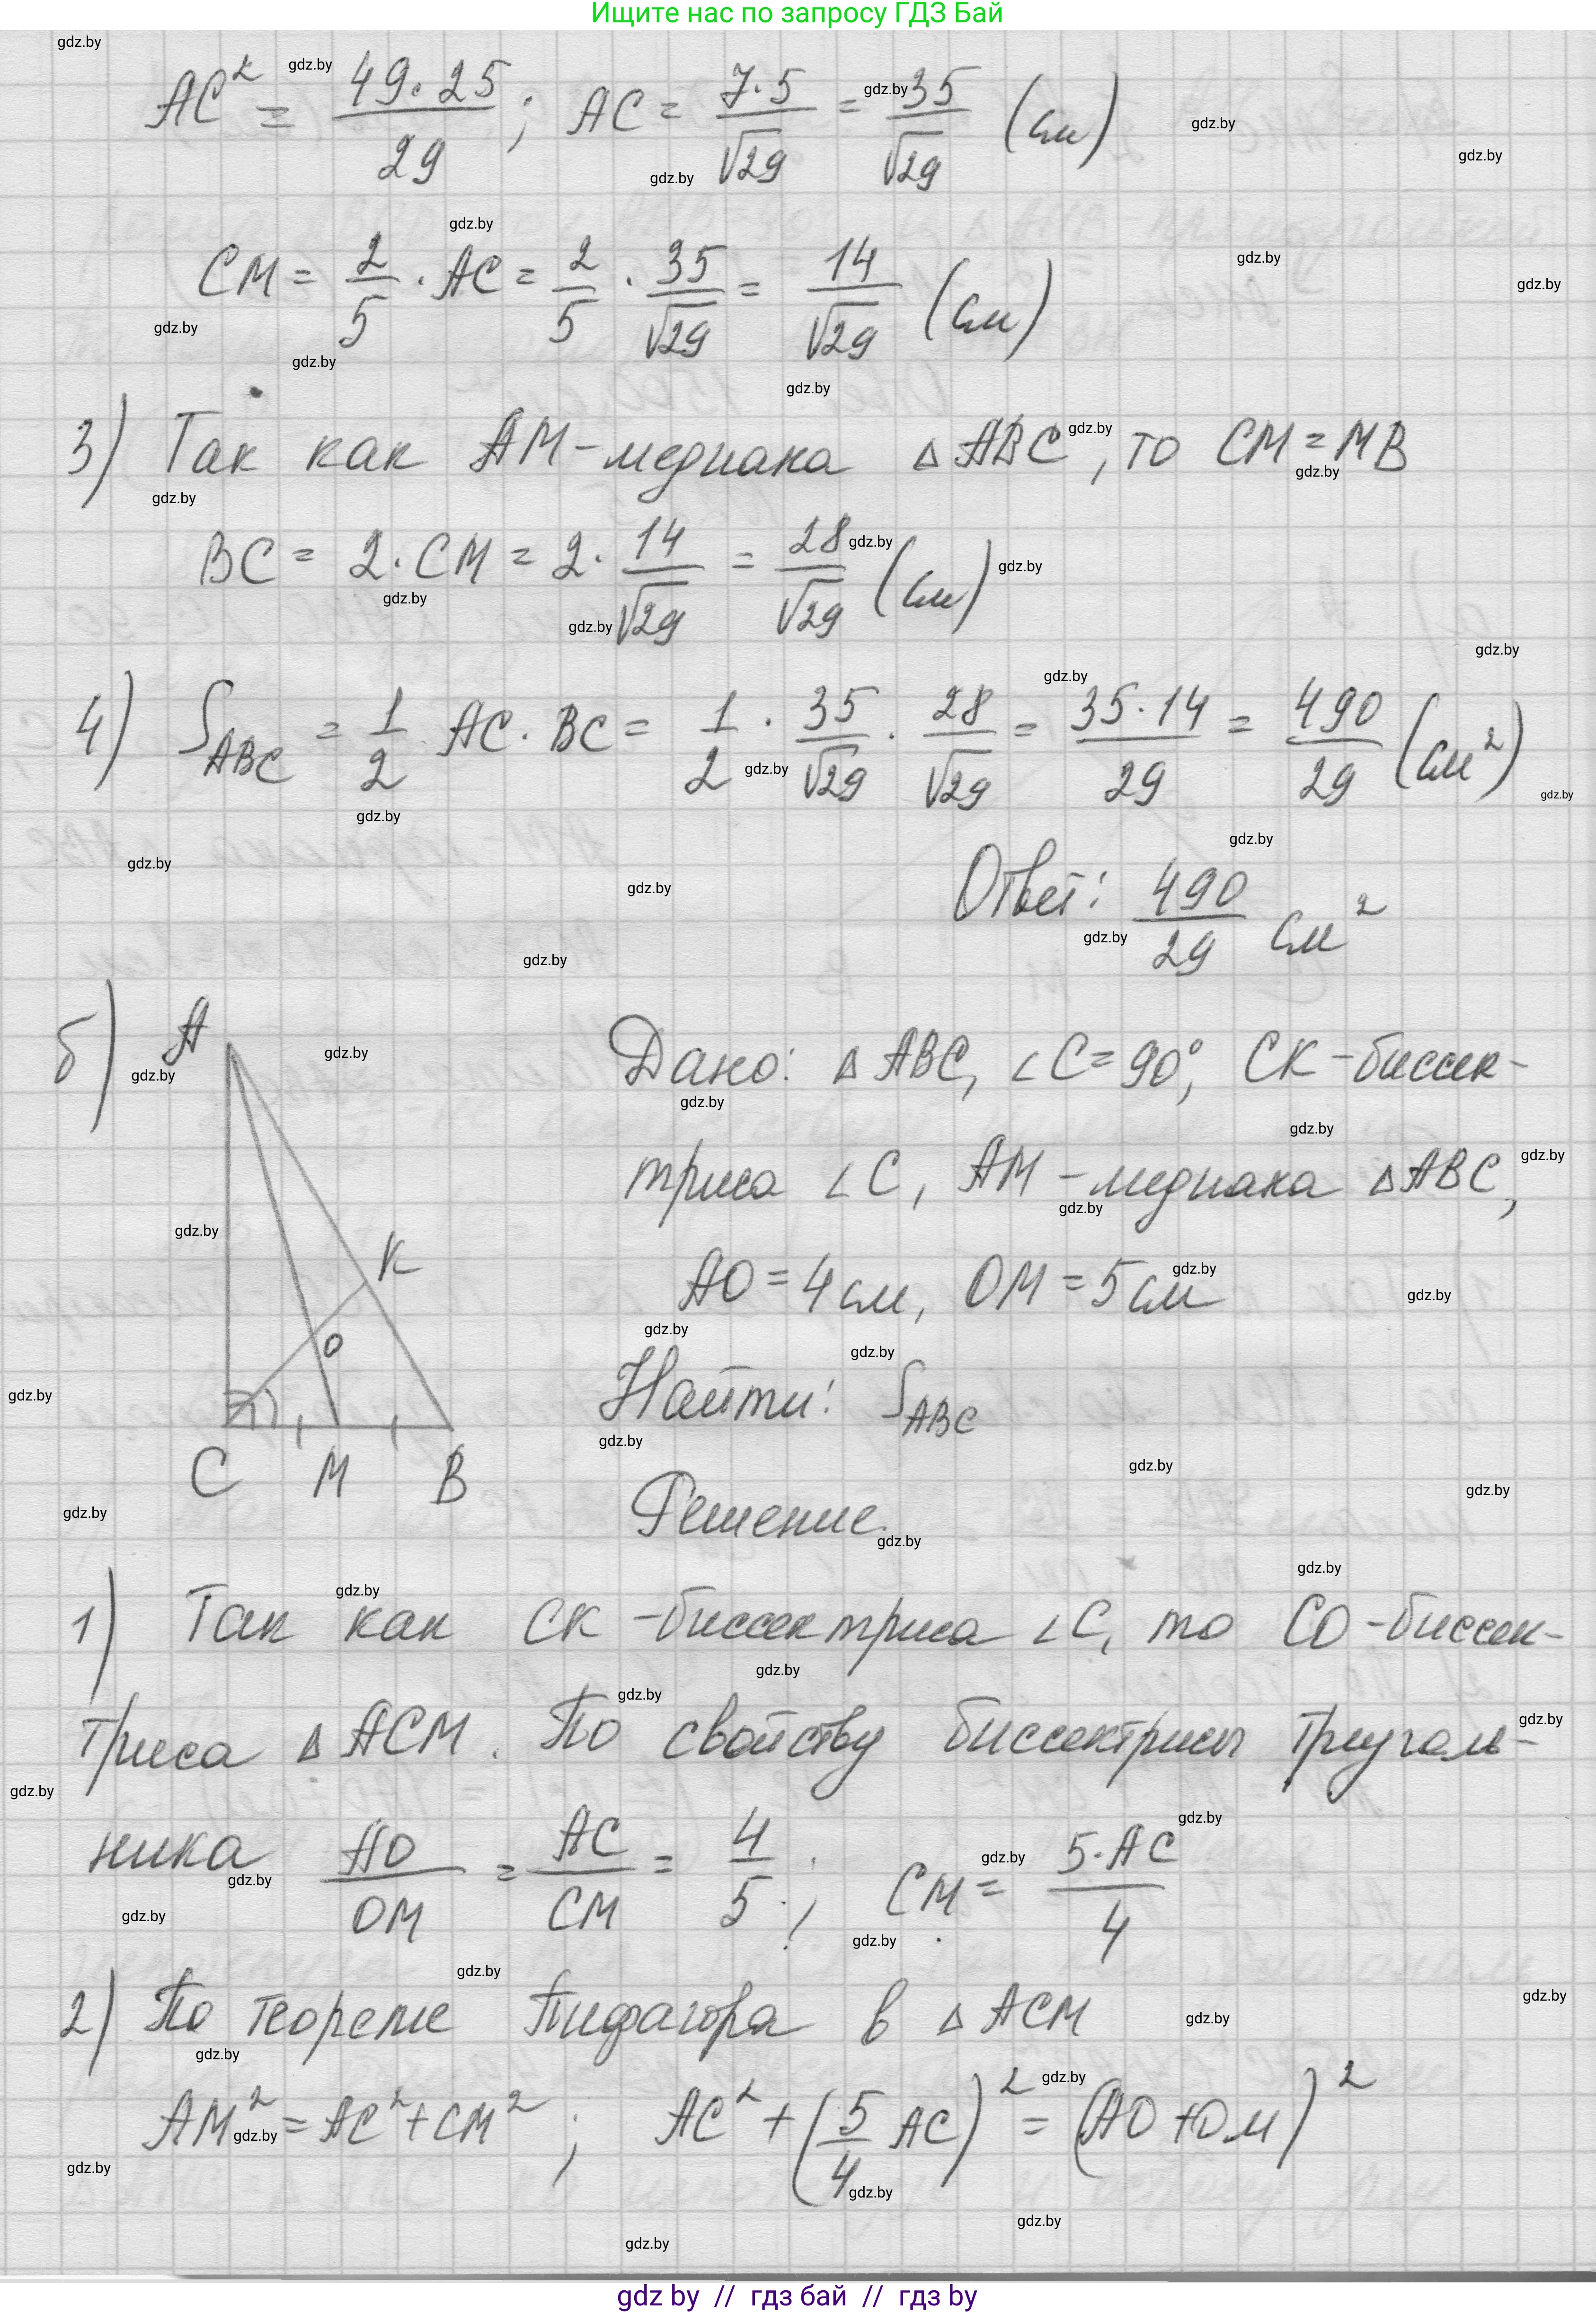 Ищите нас по запросу ГДЗ Бай
AC² = 49·25/29; AC = 7·5/√29 = 35/√29 (см)
CM = 2/5 · AC = 2/5 · 35/√29 = 14/√29 (см)
3) Так как AM - медиана △ABC, то CM = MB
BC = 2·CM = 2·14/√29 = 28/√29 (см)
4) S_ABC = 1/2 AC·BC = 1/2 · 35/√29 · 28/√29 = 35·14/29 = 490/29 (см²)
Ответ: 490/29 см²
б) A K O C M B
Дано: △ABC, ∠C=90°, CK - биссек-
триса ∠C, AM - медиана △ABC,
AO = 4 см, OM = 5 см
Найти: S_ABC
Решение.
1) Так как CK - биссектриса ∠C, то CO - биссек-
триса △ACM. По свойству биссектрисы треуголь-
ника AO/OM = AC/CM = 4/5; CM = 5·AC/4
2) По теореме Пифагора в △ACM
AM² = AC² + CM²; AC² + (5/4 AC)² = (AO + OM)²
gdz by // гдз бай // гдз by